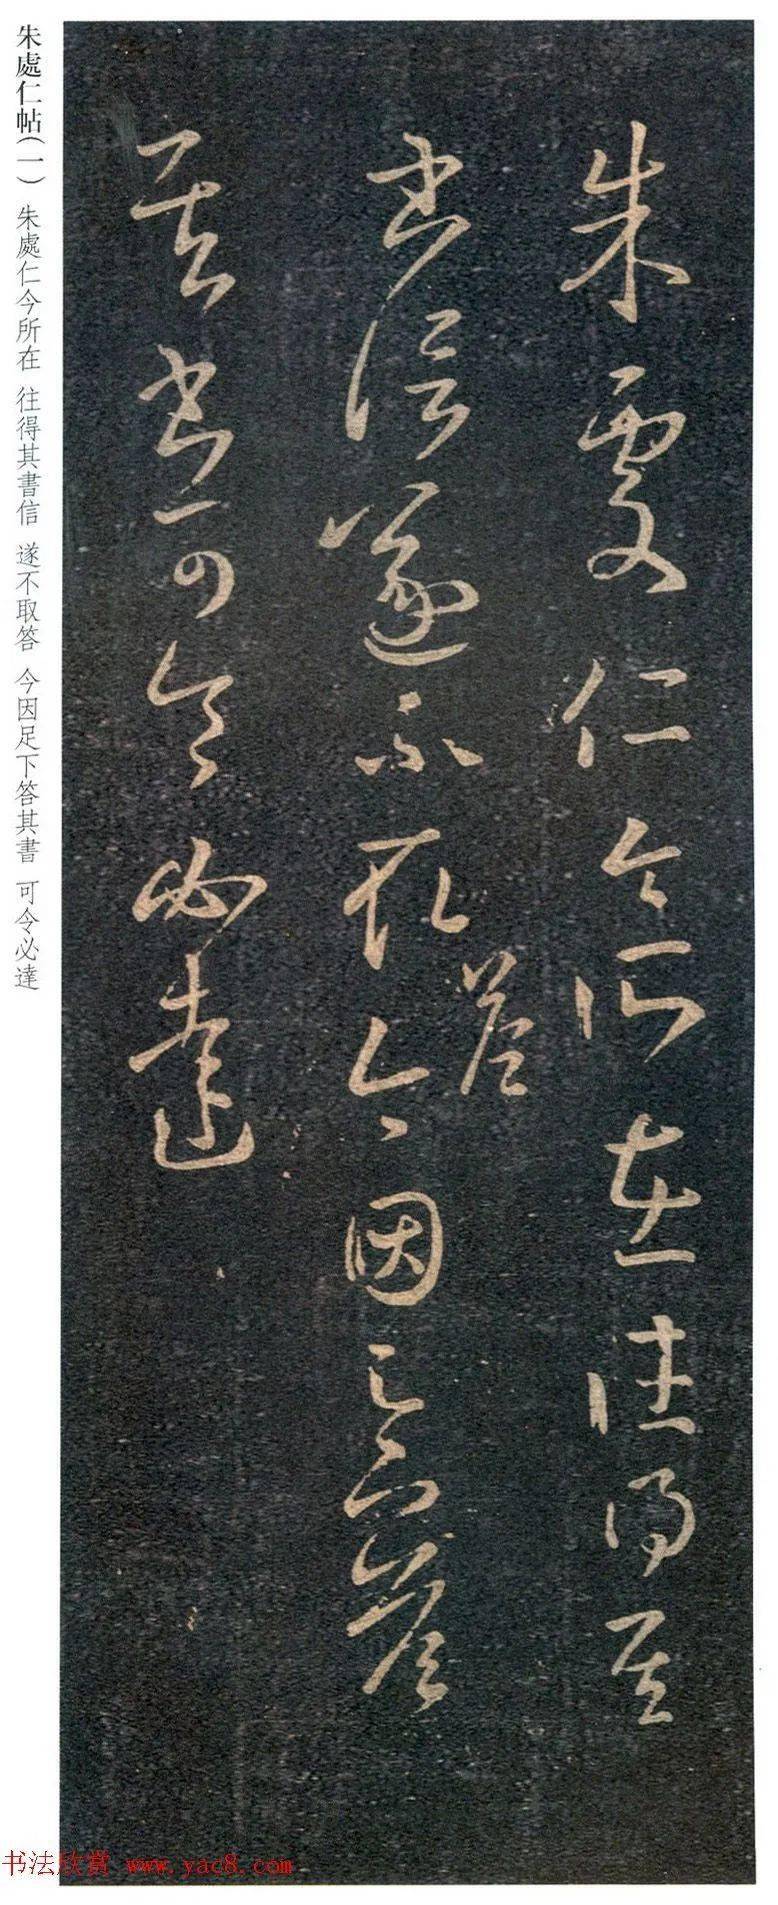 朱處仁今所在往得其
書信遂不取答今因足下答
其書可令必達
朱處仁帖(一) 朱處仁今所在 往得其書信 遂不取答 今因足下答其書 可令必達
书法欣赏 www.yac8.com